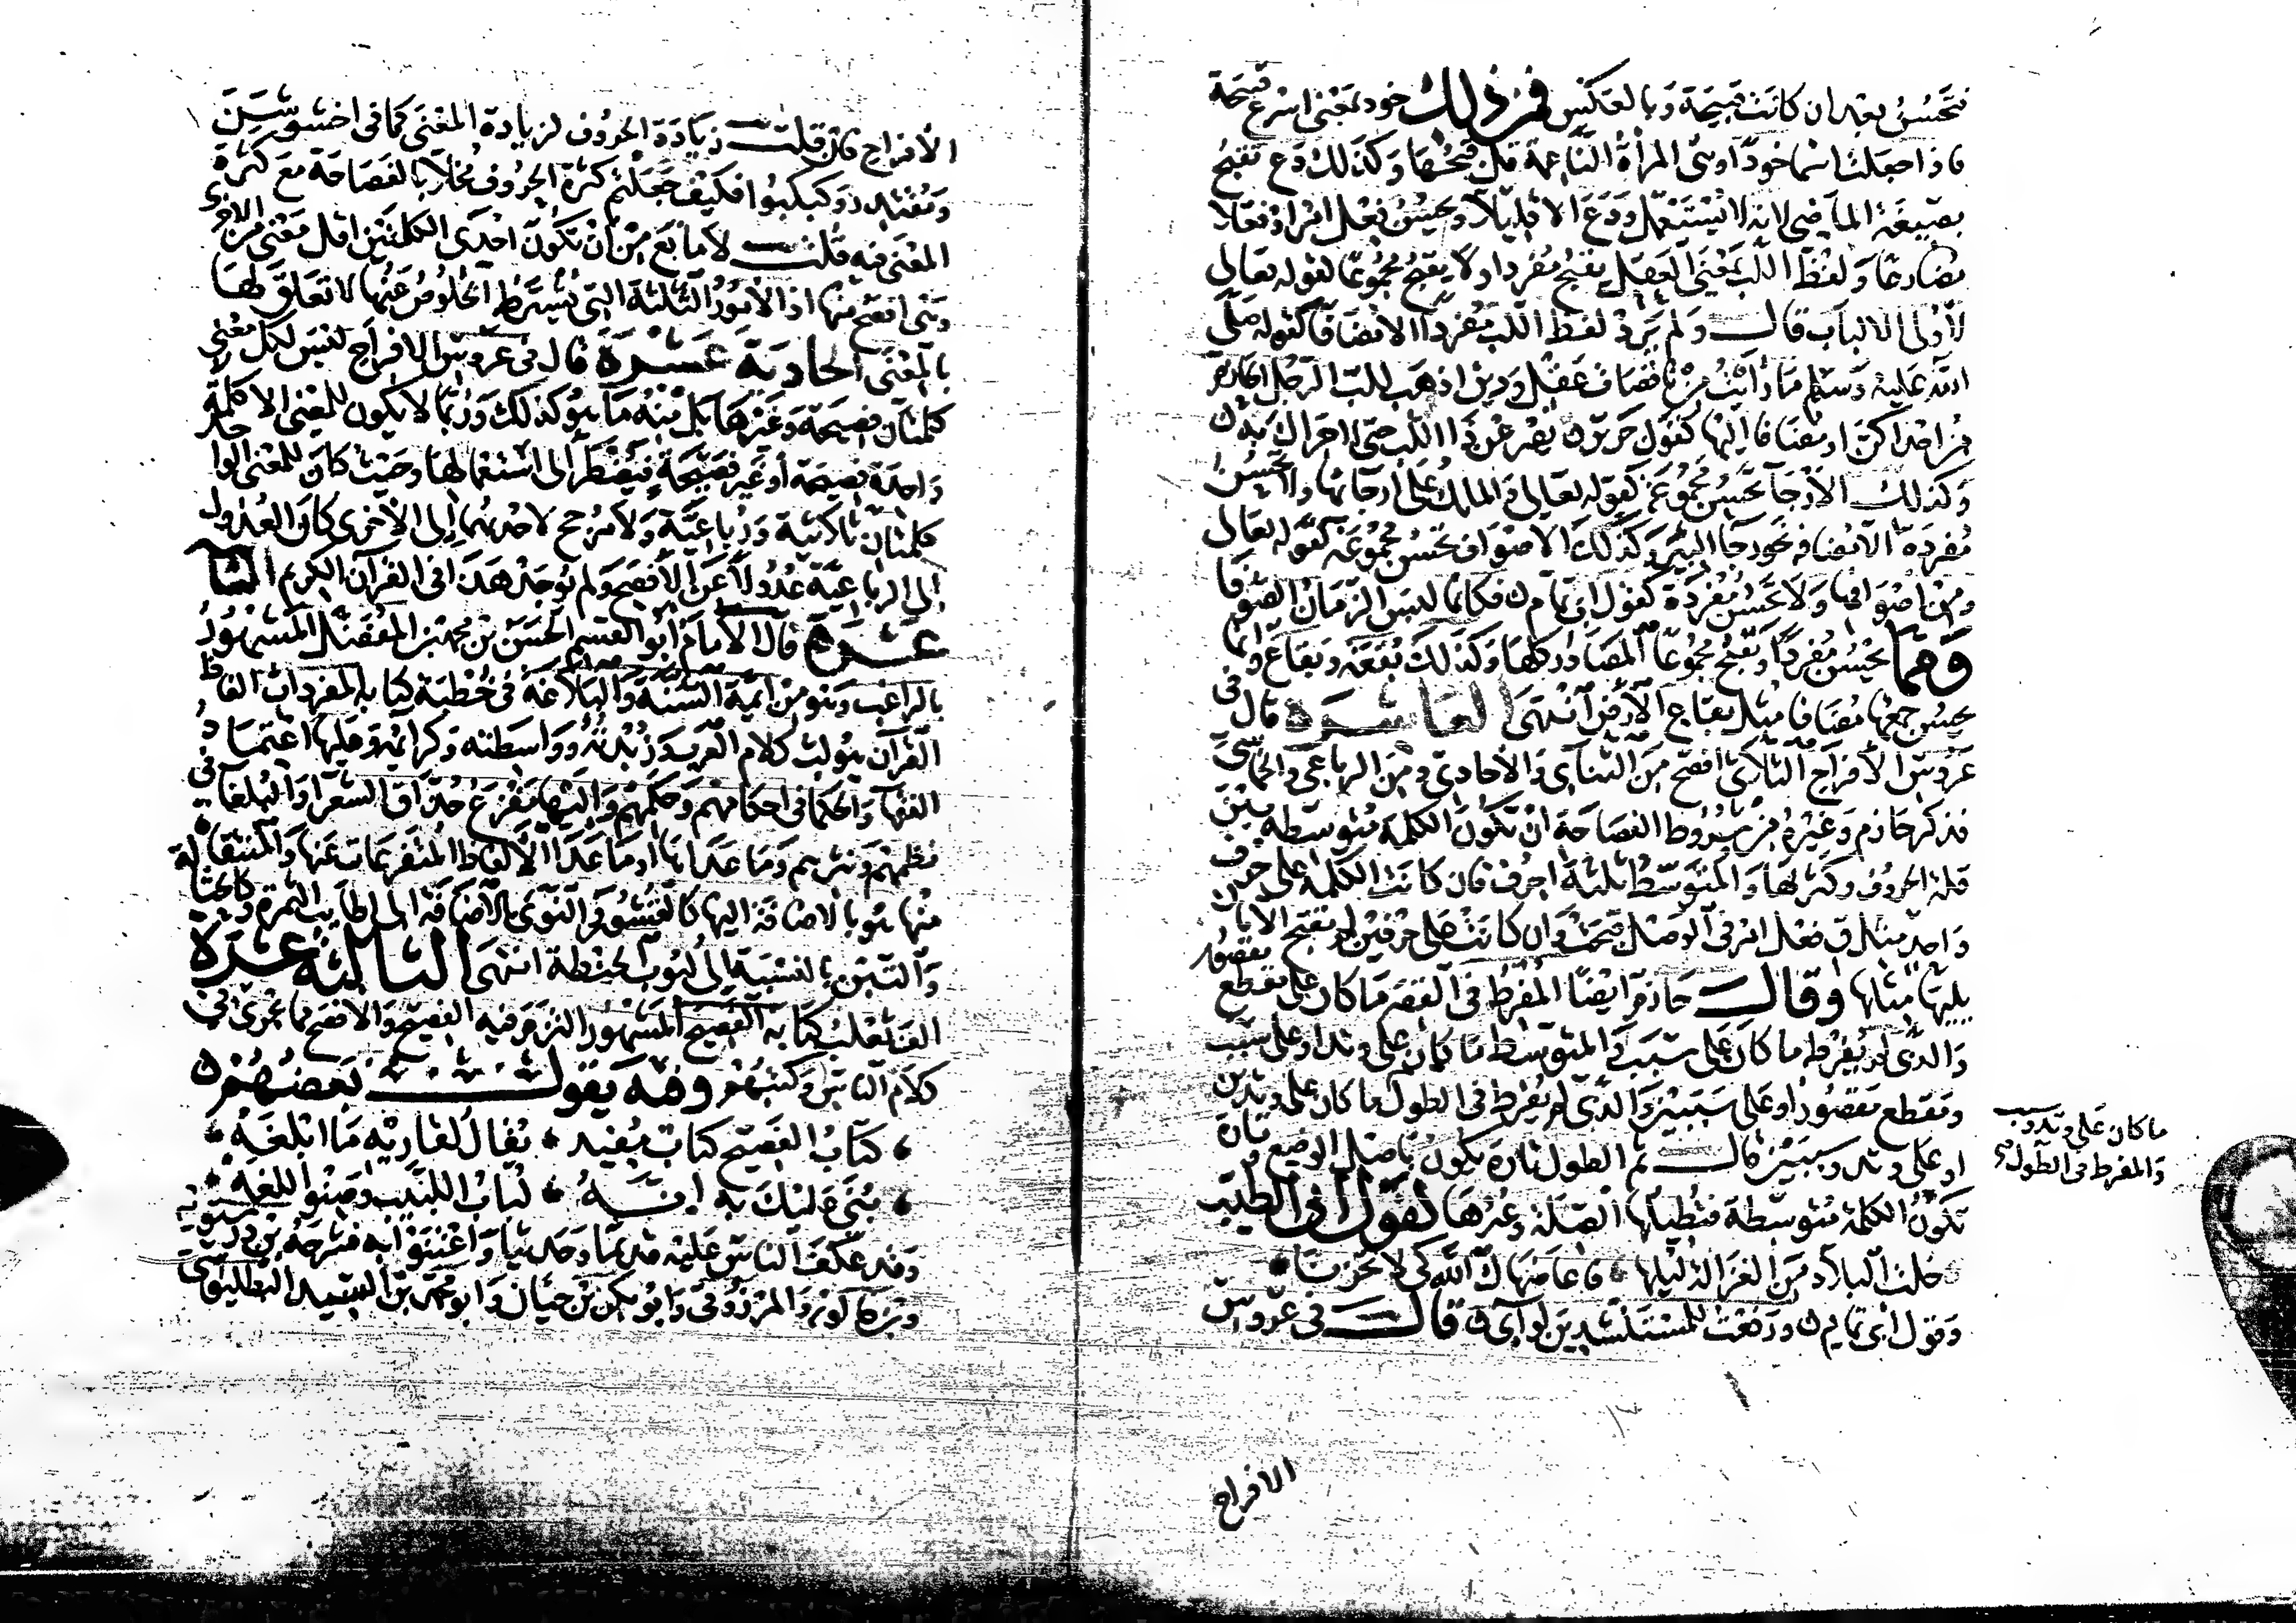 فتحسن بعد ان كانت قبيحة وبالعكس فمن ذلك خود بمعنى اسرع قبيحة
فاذا جعلت اسما خودا وهى المرأة الناعمة قل قبحها وكذلك دع تقبح
بصيغة الماضى لانه لا يستعمل ودع الا قليلا ويحسن فعل امرا وفعلا
مضارعا ولفظ اللب بمعنى العقل يقبح مفردا ولا يقبح مجموعا لقوله تعالى
لأولى الالباب قال ولم يرد لفظ اللب مفردا الا مضافا كقوله صلى
الله عليه وسلم ما رأيت من ناقصات عقل ودين اذهب للب الرجل الحازم
من احداكن او مضافا اليها كقول جرير يصرعن ذا اللب حتى لا حراك به
وكذلك الارجا تحسن مجموعة كقوله تعالى والملك على ارجائها ولا تحسن
مفردة الا مضافه نحو رجا البئر وكذلك الاصواف تحسن مجموعة كقوله تعالى
ومن اصوافها ولا تحسن مفردة كقول ابى تمام فكانما لبس الزمان الصوفا
ومما يحسن مفردا ويقبح مجموعا المصادر كلها وكذلك بقعة وبقاع وانما
يحسن جمعها مضافا مثل بقاع الارض انتهى العاشرة قال فى
عروس الافراح الثلاثى افصح من الثنائى والاحادى ومن الرباعى والخماسى
فذكر حازم وغيره من شروط الفصاحة ان تكون الكلمة متوسطه بين
قلة الحروف وكثرتها والمتوسط ثلاثة احرف فان كانت الكلمة على حرف
واحد مثل ق فعل امر فى الوصل قبحت وان كانت على حرفين لم تقبح الا بان
يليها مثلها وقال حازم ايضا المفرط فى القصر ما كان على مقطع مقصور
والذى لم يفرط ما كان على سبب والمتوسط ما كان على وتد او على سبب
ومقطع مقصور او على سببين والذى لم يفرط فى الطول ما كان على وتدين
او على وتد وسببين قال ثم الطول تارة يكون باصل الوضع وتارة
تكون الكلمة متوسطة فتطيلها الصلة وغيرها كقول ابى الطيب
خلت البلاد من الغزالة ليلها فاعاضهاك الله كى لا تحزنا
وقول ابى تمام ورفعت للمستنشدين لوآى قال فى عروس
ما كان على وتد وسبب
والمفرط فى الطول
الافراح
الافراح فان قلت زيادة الحروف لزيادة المعنى كما فى اخشوشن
ومقتدر وكبكبوا فكيف جعلتم كثرة الحروف مخلا بالفصاحة مع كثرة
المعنى فيه قلت لا مانع من ان تكون احدى الكلمتين اقل معنى من الاخرى
وهى افصح منها اذ الامور الثلثة التى يشترط الخلو عنها لا تعلق لها
بالمعنى الحادية عشرة قال فى عروس الافراح ليس لكل معنى
كلمتان فصيحة وغيرها بل منه ما هو كذلك وربما لا يكون للمعنى الا كلمة
واحدة فصيحة أو غير فصيحة فيضطر الى استعمالها وحيث كان للمعنى الواحد
كلمتان ثلاثية ورباعية ولا مرجح لاحدهما إلى الأخرى كان العدول
إلى الرباعية عدولا عن الأفصح ولم يوجد هذا فى القرآن الكريم الثانية
عشرة قال الامام أبو القسم الحسين بن محمد بن المفضل المشهور
بالراغب وهو من ايمة السنة والبلاغة فى خطبة كتابه المفردات الفاظ
القرآن هو لب كلام العرب وزبدته وواسطته وكرائمه وعليها اعتماد
الفقها والحكما فى احكامهم وحكمهم واليها مفزع حذاق الشعرا والبلغا فى
نظمهم ونثرهم وما عداها او ما عدا الالفاظ المتفرعات عنها والمشتقات
منها هو بالاضافة اليها كالقشور والنوى بالاضافة الى اطايب الثمرة وكالحثالة
والتبن بالنسبة الى لبوب الحنطة انتهى الثالثة عشرة
الف ثعلب كتابه الفصيح المشهور التزم فيه الفصيح والافصح مما يجرى فى
كلام الناس وكتبهم وفيه يقول بعضهم
كتاب الفصيح كتاب مفيد يقال لقاريه ما ابلغه
بنى عليك به انه لباب اللبيب وصنو اللغه
وقد عكف الناس عليه قديما وحديثا واعتنوا به فشرحه بن درستويه
وبركالوزن والمرزوقى وابو بكر بن حيان وابو محمد بن السيد البطليوسى